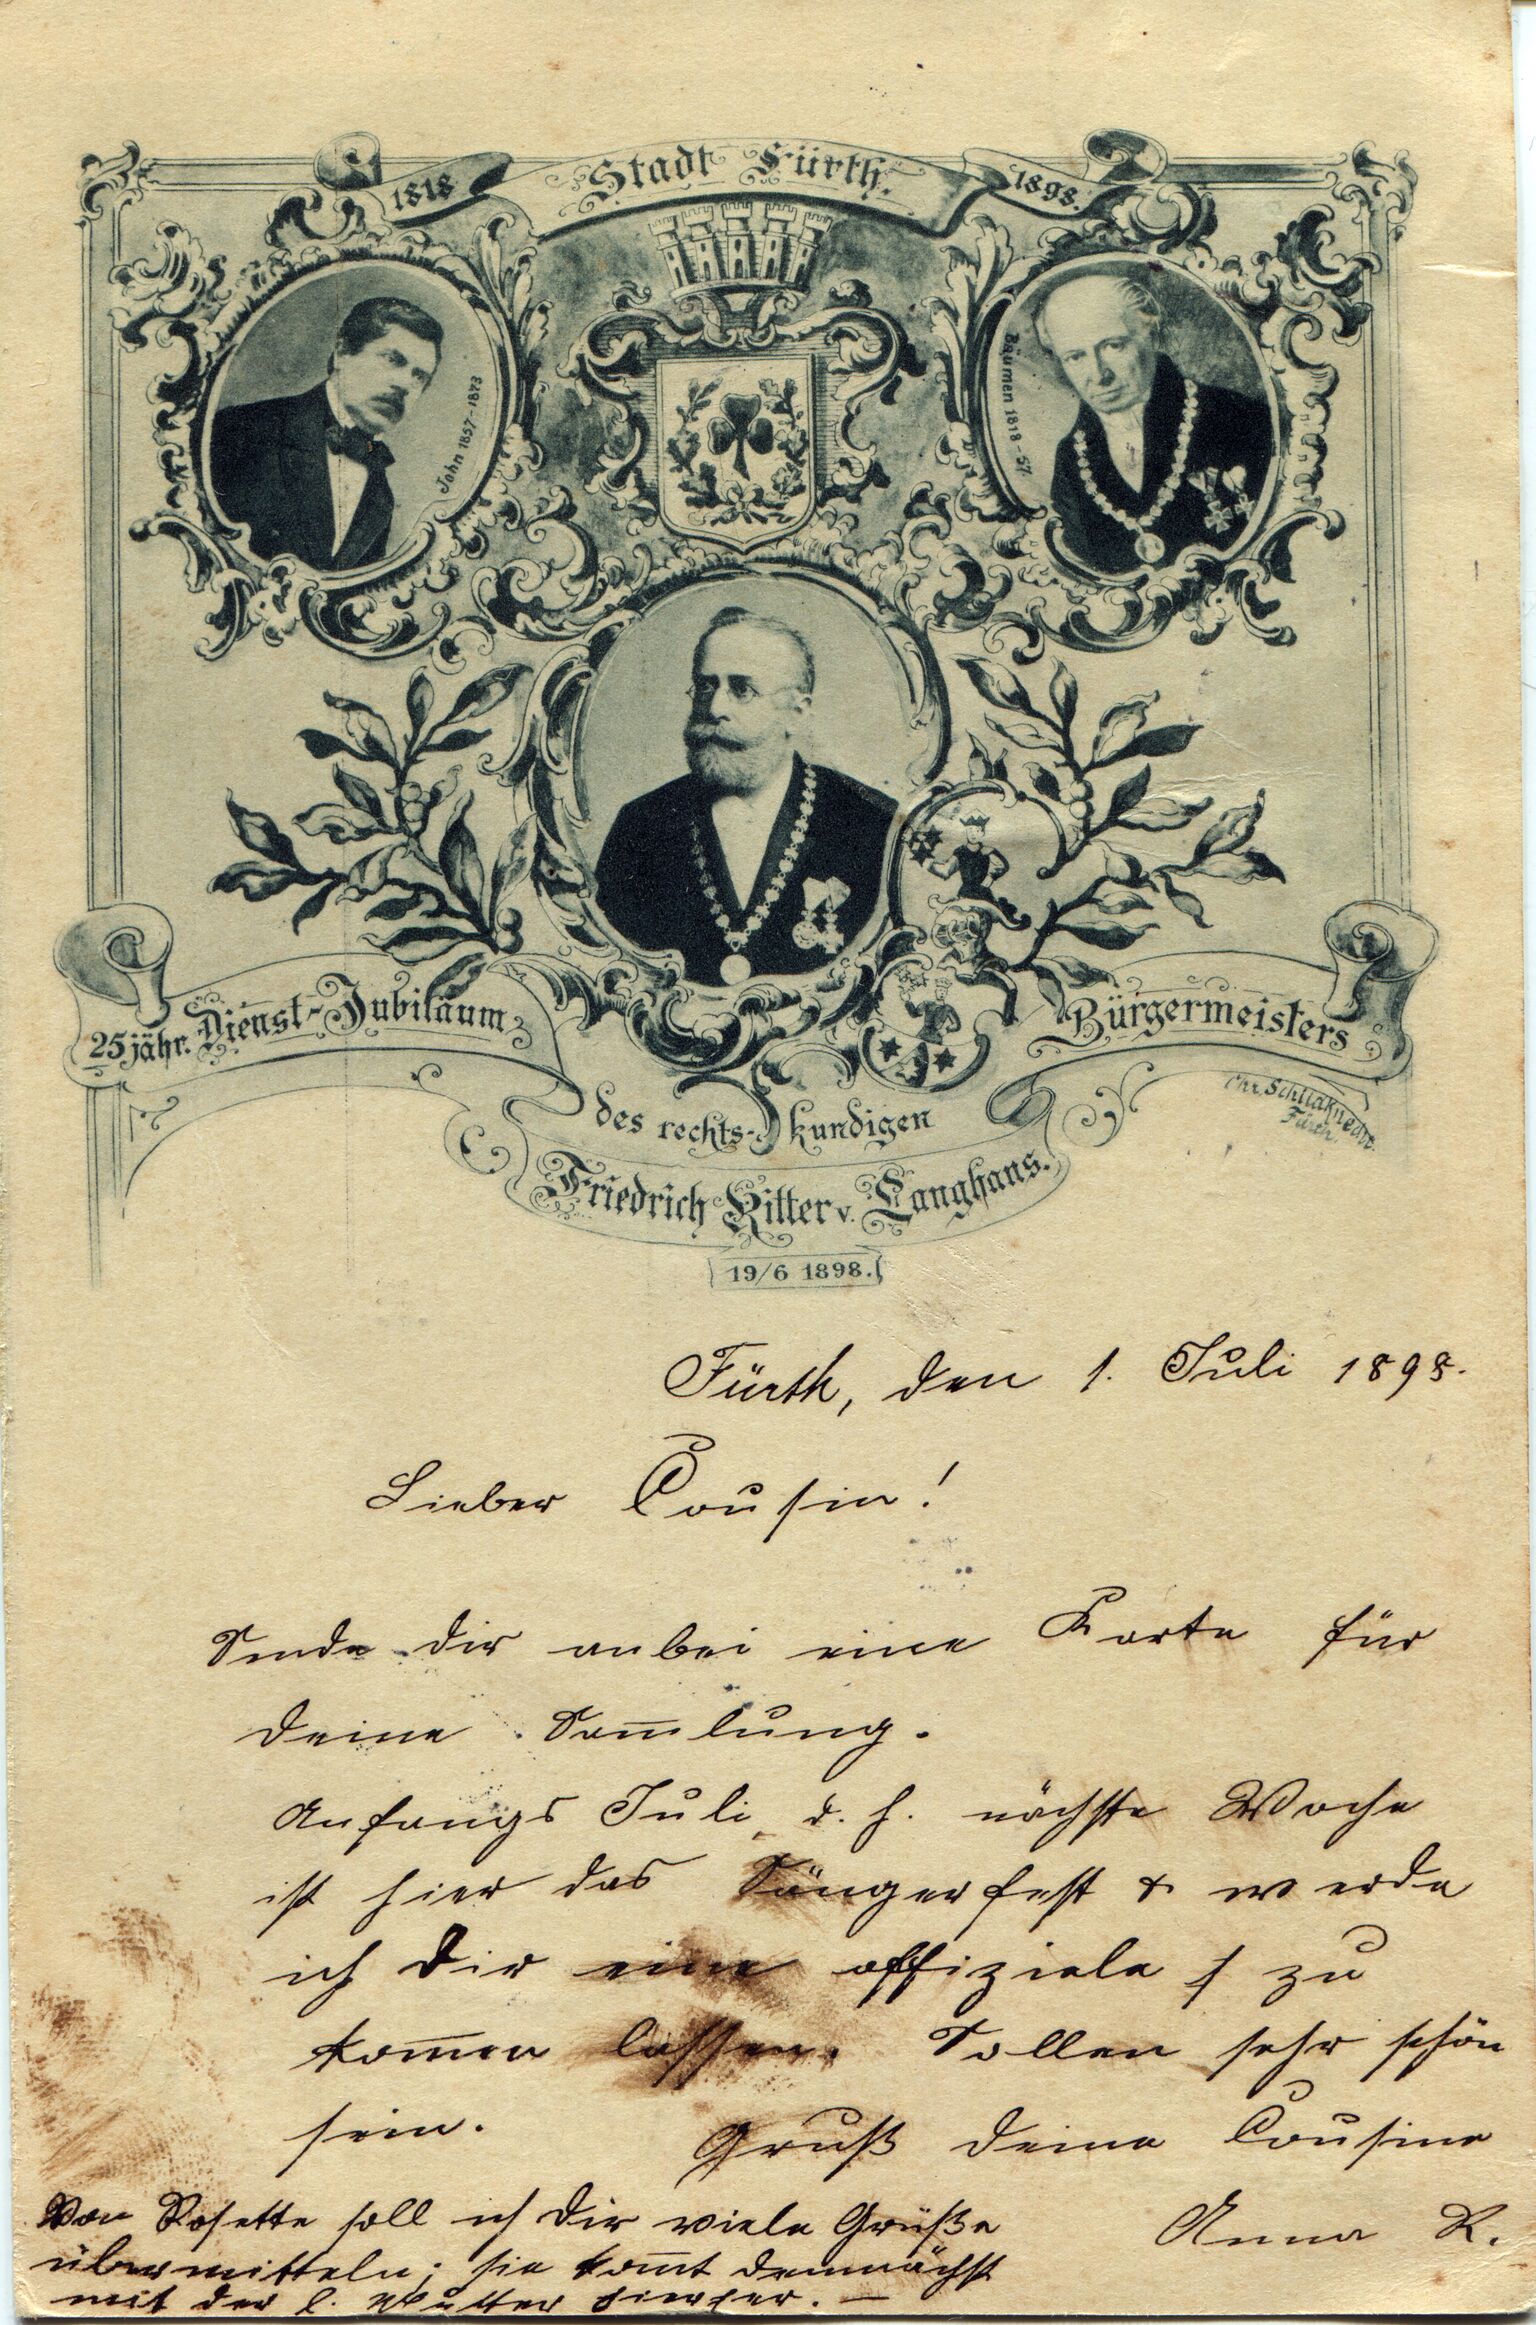 1818 Stadt Fürth. 1898.
John 1857-1873
Bäumen 1818-57.
25jähr. Dienst-Jubiläum
des rechts-kundigen
Bürgermeisters
Friedrich Ritter v. Langhans.
19/6 1898.
Chr. Schliaknecht
Fürth.
Fürth, den 1. Juli 1898.
Lieber Cousin!
Sende dir anbei eine Karte für
deine Sam̅lung.
Anfangs Juli, d. h. nächste Woche
ist hier das Sängerfest & werde
ich dir eine offiziele zu
kom̅en lassen. Sollen sehr schön
sein.
Gruß deine Cousine
Anna R.
Von Rosette soll ich dir viele Grüße
übermitteln; sie kom̅t demnächst
mit der l. Mutter hierher. —